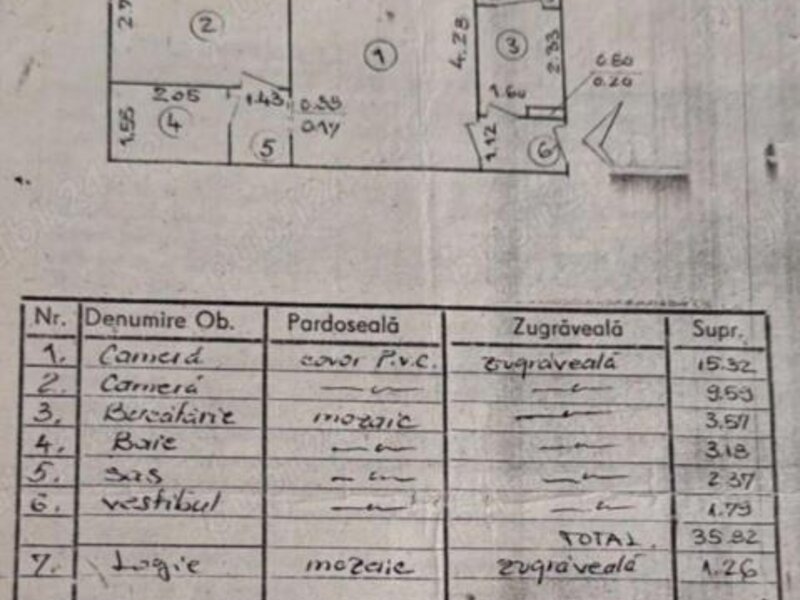 2
1
4.28
3
2.33
1.60
0.60
0.20
2.05
1.43
0.35
0.17
1.55
4
5
1.12
6
Nr. Denumire Ob. Pardoseală Zugrăveală Supr.
1. Cameră covor P.V.C. zugrăveală 15.32
2. Cameră —〃— —〃— 9.59
3. Bucătărie mozaic —〃— 3.57
4. Baie —〃— —〃— 3.18
5. sas —〃— —〃— 2.37
6. vestibul —〃— —〃— 1.79
TOTAL 35.82
7. Logie mozaic zugrăveală 1.26